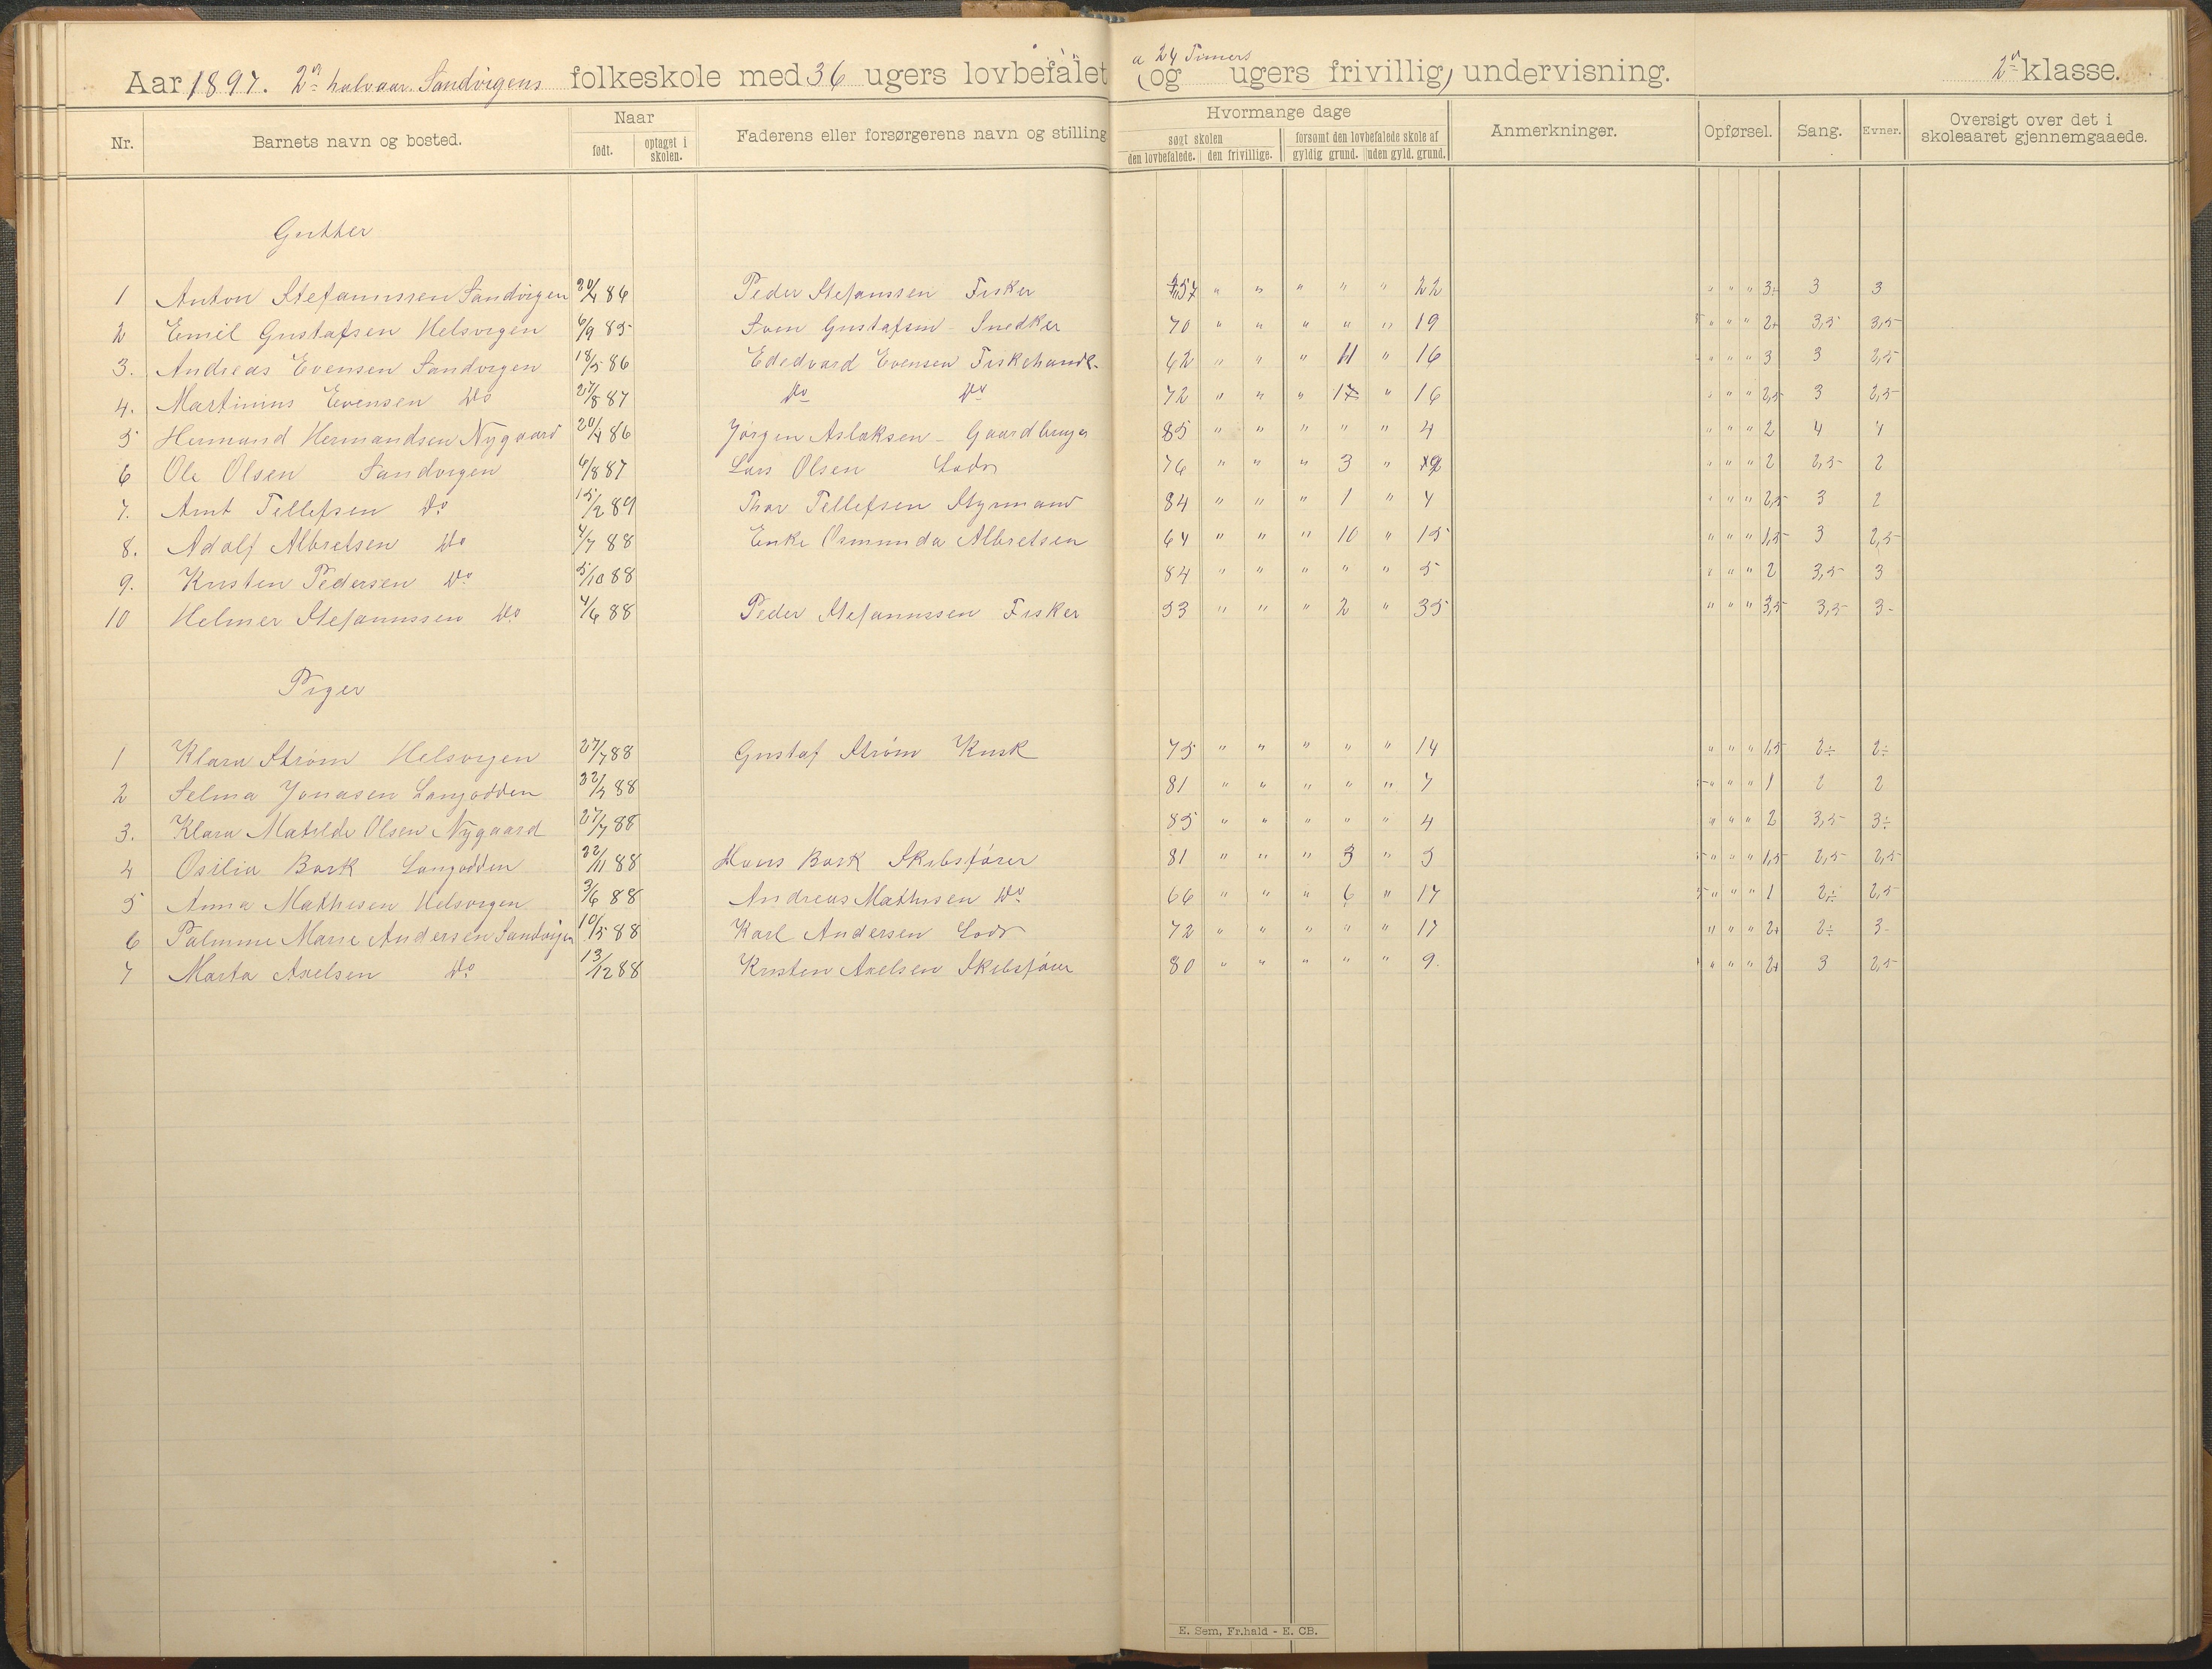 Aar 1897. 2n halvaar. Sandvigens folkeskole med 36 ugers lovbefalet (og a 24 Timers ugers frivillig) undervisning. 2n klasse.
Nr. Barnets navn og bosted. Naar født. optaget i skolen. Faderens eller forsørgerens navn og stilling Hvormange dage søgt skolen den lovbefalede. den frivillige. forsømt den lovbefalede skole af gyldig grund. uden gyld. grund. Anmerkninger. Opførsel. Sang. Evner. Oversigt over det i skoleaaret gjennemgaaede.
Gutter
1 Anton Stefanussen Sandvigen 20/4 86 Peder Stefanssen Fisker 57 " " " " " 22 " " " 3÷ 3 3
2 Emil Gustafsen Helsvigen 6/9 85 Sven Gustafsen - Snedker 70 " " " " " 19 " " " 2+ 3,5 3,5
3. Andreas Evensen Sandvigen 18/5 86 Ededvard Evensen Fiskehandl. 62 " " " 11 " 16 " " " 3 3 2,5
4. Martinius Evensen Do 27/8 87 Do Do 72 " " " 1 " 16 " " " 2,5 3 2,5
5 Hermand Hermandsen Nygaard 20/4 86 Jørgen Aslaksen - Gaardbruger 85 " " " " " 4 " " " 2 4 4
6 Ole Olsen Sandvigen 6/8 87 Lars Olsen Lods 76 " " " 3 " " " " 2 2,5 2
7. Arnt Tellefsen Do 15/2 89 Thor Tellefsen Styrmand 84 " " " 1 " 4 " " " 2,5 3 2
8. Adolf Albretsen Do 4/7 88 Enke Osmunda Albretsen 64 " " " 10 " 15 " " " 1,5 3 2,5
9. Kristen Pedersen Do 5/10 88 84 " " " " " 5 " " " 2 3,5 3
10 Helmer Stefanussen Do 4/6 88 Peder Stefanussen Fisker 53 " " " 2 " 35 " " " 3,5 3,5 3-
Piger
1 Klara Strøm Helsvigen 27/7 88 Gustaf Strøm Kusk 75 " " " " " 14 " " " 1,5 2÷ 2÷
2 Selma Jonasen Langodden 88 81 " " " " " 7 " " " 1 2 2
3. Klara Matilde Olsen Nygaard 27/7 88 85 " " " " " 4 " " " 2 3,5 3÷
4 Osilia Bork Langodden 22/11 88 Hans Bork Skibsfører 81 " " " 3 " 5 " " " 1,5 2,5 2,5
5 Anna Mathesen Helsvigen 3/6 88 Andreas Mathisen Do 66 " " " 6 " 17 " " " 1 2÷ 2,5
6 Palmine Marie Andersen Sandvigen 10/5 88 Karl Andersen Lods 72 " " " " " 17 " " " 2+ 2÷ 3-
7 Marta Axelsen Do 13/12 88 Kristen Axelsen Skibsfører 80 " " " " " 9. " " " 2+ 3 2,5
E. Sem, Fr.hald - E. CB.